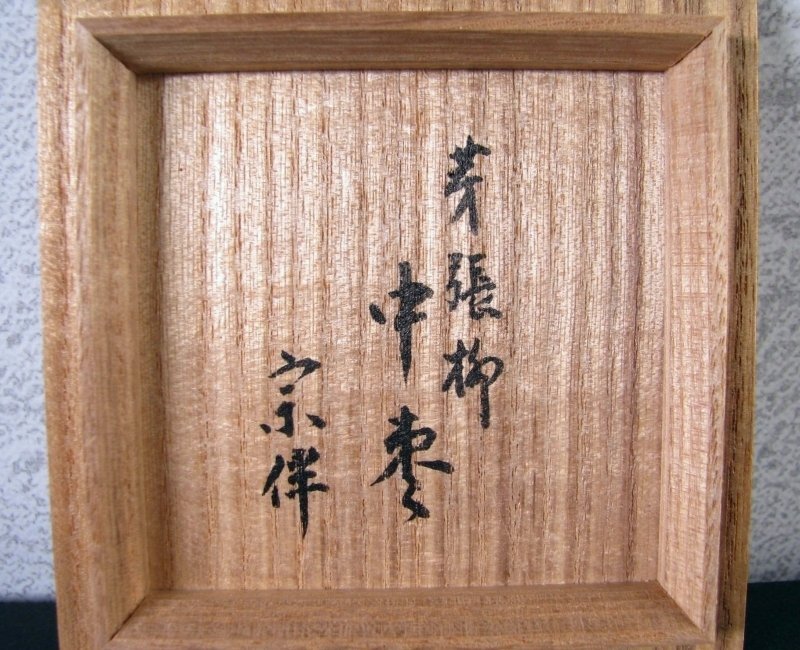 芽張柳
中棗
宗伴